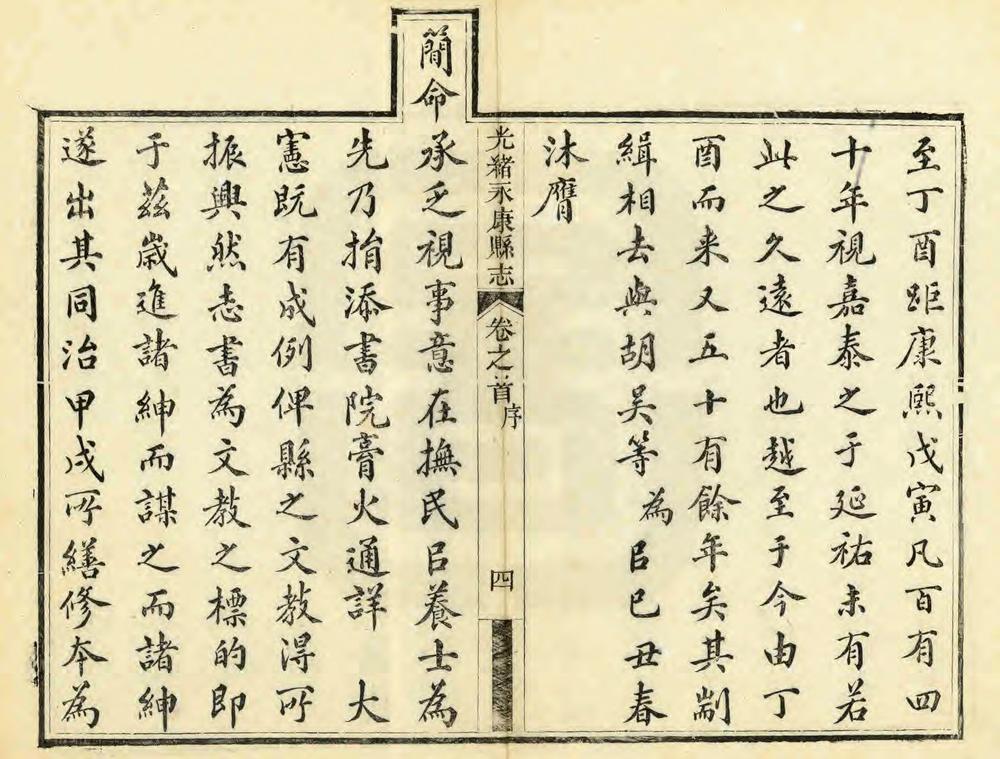 至丁酉距康熙戊寅凡百有四
十年視嘉泰之于延祐未有若
此之久遠者也越至于今由丁
酉而来又五十有餘年矣其剬
緝相去與胡吴等為㠯己丑春
沐膺
光緒永康縣志 卷之首 序 四
簡命
承乏視事意在撫民㠯養士為
先乃捐添書院膏火通詳 大
憲既有成例俾縣之文教淂所
振興然志書為文教之標的即
于兹歲進諸紳而謀之而諸紳
遂出其同治甲戌所繕修夲為